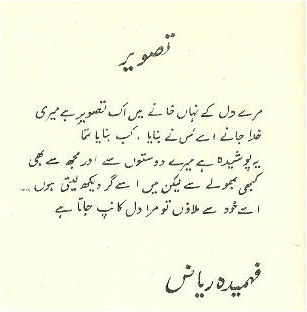 تصویر
مرے دل کے نہاں خانے میں اک تصویر ہے میری
خدا جانے اسے کس نے بنایا، کب بنایا تھا
یہ پوشیدہ ہے میرے دوستوں سے اور مجھ سے بھی
کبھی بھولے سے لیکن میں اسے گر دیکھ لیتی ہوں ....
اسے خود سے ملاؤں تو مرا دل کانپ جاتا ہے
فہمیدہ ریاض